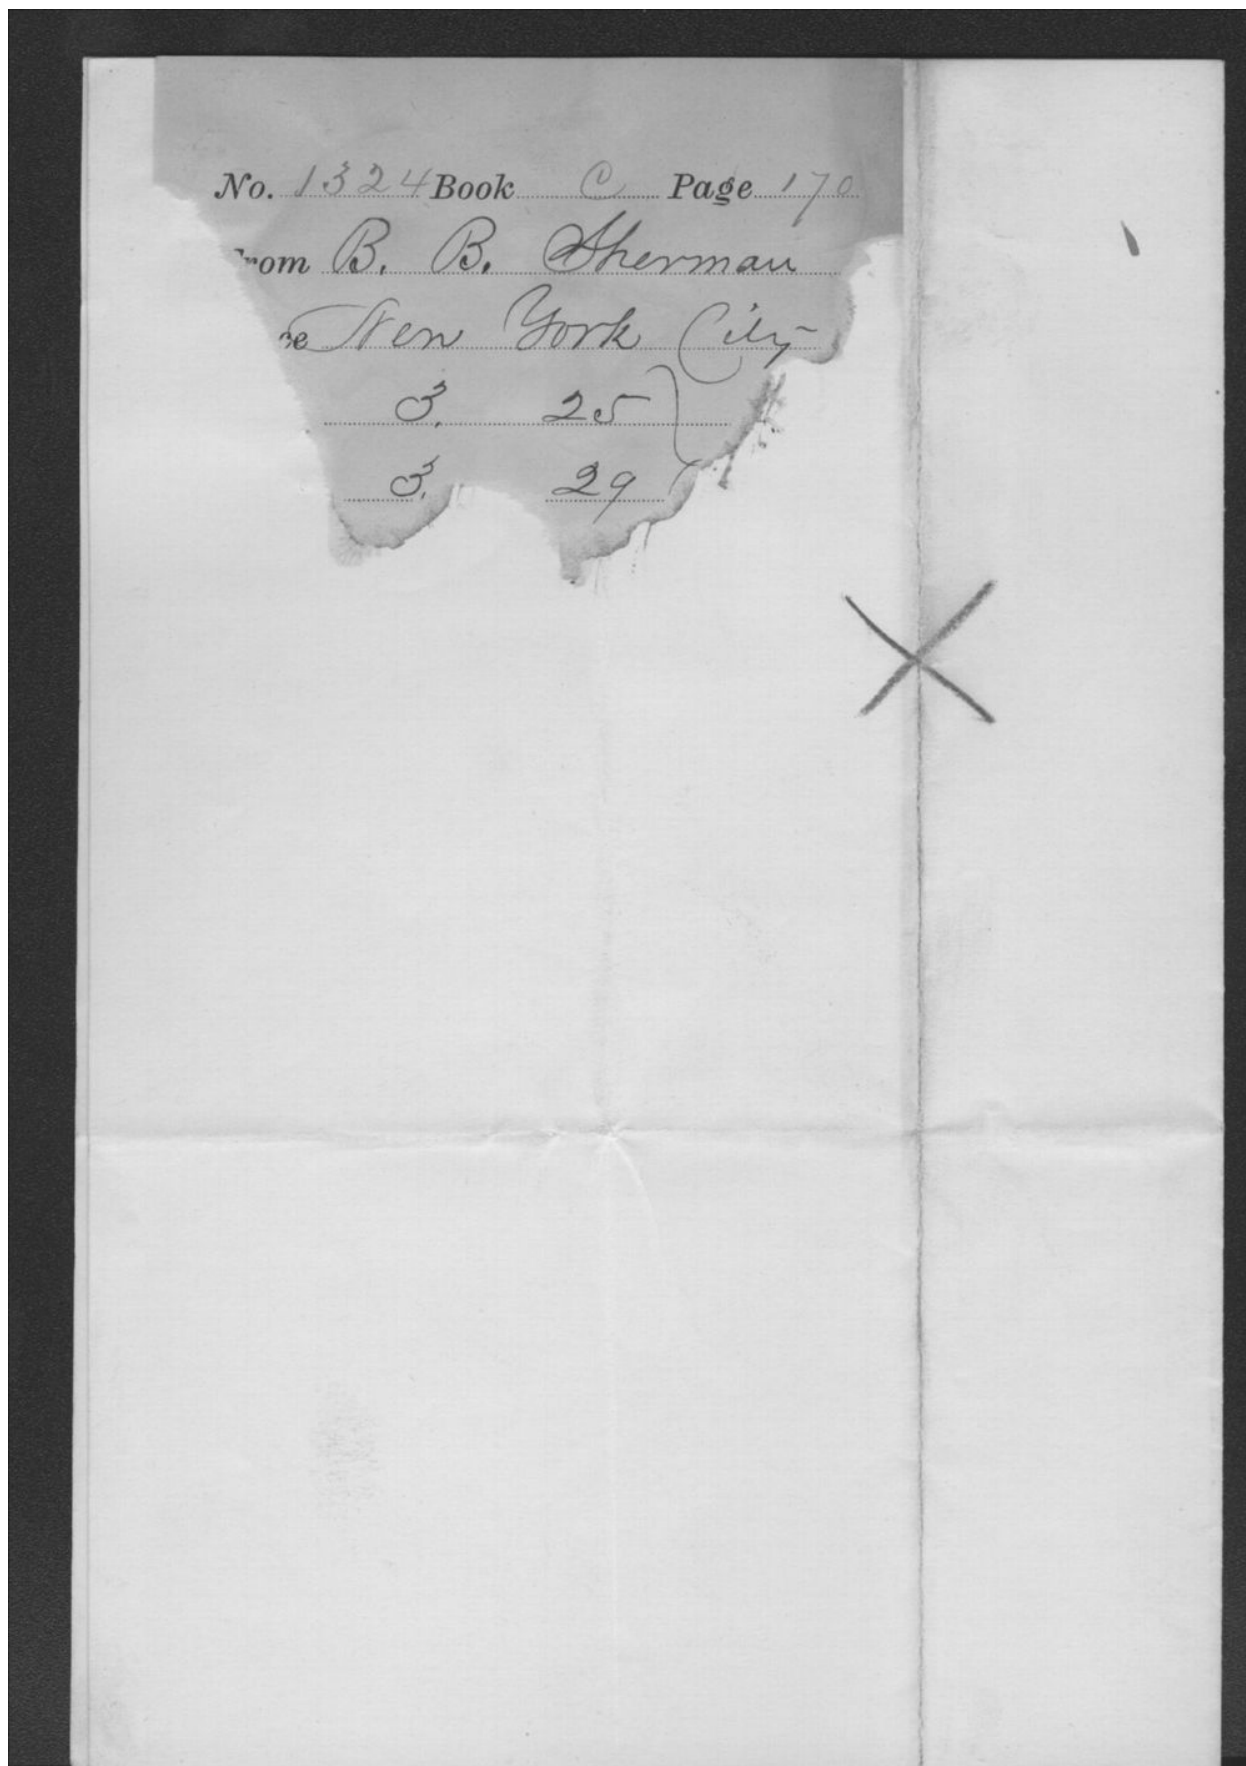 No. 1324 Book C Page 170
From B. B. Sherman
New York City
3. 25
3. 29